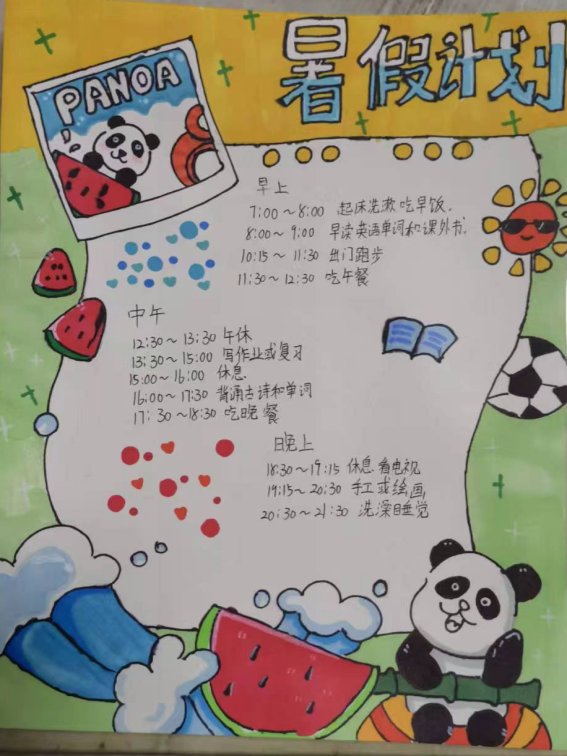 暑假计划
PANOA
早上
7:00～8:00 起床洗漱吃早饭.
8:00～9:00 早读英语单词和课外书.
10:15～11:30 出门跑步
11:30～12:30 吃午餐
中午
12:30～13:30 午休
13:30～15:00 写作业或复习
15:00～16:00 休息
16:00～17:30 背诵古诗和单词
17:30～18:30 吃晚餐
晚上
18:30～19:15 休息看电视
19:15～20:30 手工或绘画
20:30～21:30 洗澡睡觉